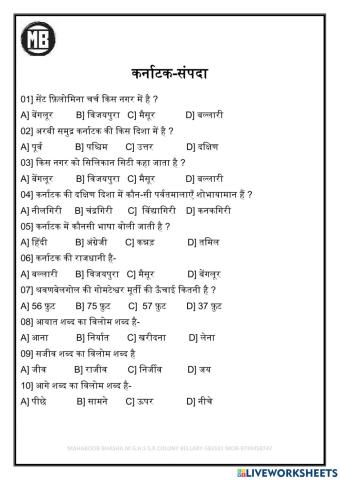 MB
कर्नाटक-संपदा
01] सेंट फ़िलोमिना चर्च किस नगर में है ?
A] बेंगलूर B] विजयपुरा C] मैसूर D] बल्लारी
02] अरबी समुद्र कर्नाटक की किस दिशा में है ?
A] पूर्व B] पश्चिम C] उत्तर D] दक्षिण
03] किस नगर को सिलिकान सिटी कहा जाता है ?
A] बेंगलूर B] विजयपुरा C] मैसूर D] बल्लारी
04] कर्नाटक की दक्षिण दिशा में कौन-सी पर्वतमालाएँ शोभायामान हैं ?
A] नीलगिरी B] चंद्रगिरी C] विंद्यागिरी D] कनकगिरी
05] कर्नाटक में कौनसी भाषा बोली जाती है ?
A] हिंदी B] अंग्रेजी C] कन्नड़ D] तमिल
06] कर्नाटक की राजधानी है-
A] बल्लारी B] विजयपुरा C] मैसूर D] बेंगलूर
07] श्रवणबेलगोल की गोमटेश्वर मूर्ती की ऊँचाई कितनी है ?
A] 56 फ़ुट B] 75 फ़ुट C] 57 फ़ुट D] 37 फ़ुट
08] आयात शब्द का विलोम शब्द है-
A] आना B] निर्यात C] खरीदना D] लेना
09] सजीव शब्द का विलोम शब्द है
A] जीव B] राजीव C] निर्जीव D] जय
10] आगे शब्द का विलोम शब्द है-
A] पीछे B] सामने C] ऊपर D] नीचे
LIVEWORKSHEETS